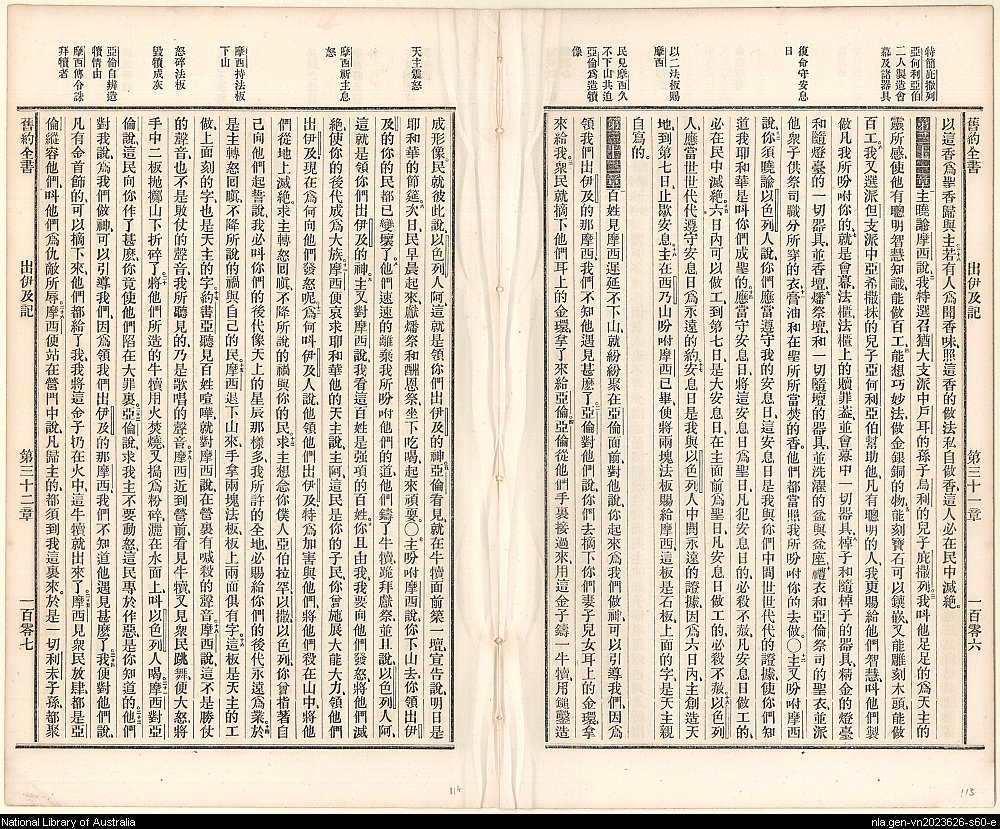 舊約全書　出伊及記　第三十一章　一百零六
特簡庇撒列
亞何利亞伯
二人製造會
幕及諸器具
復命守安息
日
以二法板賜
摩西
民見摩西久
不下山共迫
亞倫爲造犢
像
以這香爲聖香歸與主若有人爲聞香味照這香的做法私自做香這人必在民中滅絕
第三十一章主曉諭摩西說我特選召猶大支派中戶耳的孫子烏利的兒子庇撒列我叫他足足的爲天主的
靈所感使他有聰明智慧知識能做百工能想巧妙法做金銀銅的物能刻寶石可以鑲嵌又能雕刻木頭能做
百工我又選派但支派中亞希撒抹的兒子亞何利亞伯幫助他凡有聰明的人我更賜給他們智慧叫他們製
做凡我所吩咐你的就是會幕法櫃法櫃上的贖罪蓋並會幕中一切器具棹子和隨棹子的器具精金的燈臺
和隨燈臺的一切器具並香壇燔祭壇和一切隨壇的器具並洗濯的盆與盆座禮衣和亞倫祭司的聖衣並派
他衆子供祭司職分所穿的衣膏油和在聖所所當焚的香他們都當照我所吩咐你的去做〇主又吩咐摩西
說你須曉諭以色列人說你們應當遵守我的安息日這安息日是我與你們中間世世代代的證據使你們知
道我耶和華是叫你們成聖的應當守安息日將這安息日爲聖日凡犯安息日的必殺不赦凡安息日做工的
必在民中滅絕六日內可以做工到第七日是大安息日在主面前爲聖日凡安息日做工的必殺不赦以色列
人應當世世代代遵守安息日爲永遠的約安息日是我與以色列人中間永遠的證據因爲六日內主創造天
地到第七日止歇安息主在西乃山吩咐摩西已畢便將兩塊法板賜給摩西這板是石板板上面的字是天主親
自寫的
第三十二章百姓見摩西遲延不下山就紛紛聚在亞倫面前對他說你起來爲我們做神可以引導我們因爲
領我們出伊及的那摩西我們不知他遇見甚麼了亞倫對他們說你們去摘下你們妻子兒女耳上的金環拿
來給我衆民就摘下他們耳上的金環拿了來給亞倫亞倫從他們手裏接過來用這金子鑄一牛犢用鎚鑿造
天主震怒
摩西祈主息
怒
摩西持法板
下山
怒碎法板
毀犢成灰
亞倫自辨造
犢情由
摩西傳令誅
拜犢者
成形像民就彼此說以色列人阿這就是領你們出伊及的神亞倫看見就在牛犢面前築一壇宣告說明日是
耶和華的節筵次日民早晨起來獻燔祭和酬恩祭坐下吃喝起來頑耍〇主吩咐摩西說你下山去你領出伊
及的你的民都已變壞了他們速速的離棄我所吩咐他們的道他們鑄了牛犢跪拜獻祭並且說以色列人阿
這就是領你們出伊及的神主又對摩西說我看這百姓是強項的百姓你且由我我要向他們發怒將他們滅
絕使你的後代成爲大族摩西便哀求耶和華他的天主說主阿這民是你的子民你曾施展大能大力領他們
出伊及現在爲何向他們發怒呢爲何叫伊及人說他領他們出伊及特爲加害與他們將他們殺在山中將他
們從地上滅絕求主轉怒回嗔不降所說的禍與你的民求主想念你僕人亞伯拉罕以撒以色列你曾指著自
己向他們起誓說我必叫你們的後代像天上的星辰那樣多我所許的全地必賜給你們的後代永遠爲業於
是主轉怒回嗔不降所說的禍與自己的民摩西退下山來手拿兩塊法板板上兩面俱有字這板是天主的工
做上面刻的字也是天主的字約書亞聽見百姓喧嘩就對摩西說在營裏有喊殺的聲音摩西說這不是勝仗
的聲音也不是敗仗的聲音我所聽見的乃是歌唱的聲音摩西近到營前看見牛犢又見衆民跳舞便大怒將
手中二板拋擲山下折碎了將他們所造的牛犢用火焚燒又搗爲粉碎灑在水面上叫以色列人喝摩西對亞
倫說這民向你作了甚麼你竟使他們陷在大罪裏亞倫說求我主不要動怒這民專於作惡是你知道的他們
對我說爲我們做神可以引導我們因爲領我們出伊及的那摩西我們不知道他遇見甚麼了我便對他們說
凡有金首飾的可以摘下來他們都給了我我將這金子扔在火中這牛犢就出來了摩西見衆民放肆都是亞
倫縱容他們叫他們爲仇敵所辱摩西便站在營門中說凡歸主的都須到我這裏來於是一切利未子孫都聚
舊約全書　出伊及記　第三十二章　一百零七
114
113
National Library of Australia
nla.gen-vn2023626-s60-e